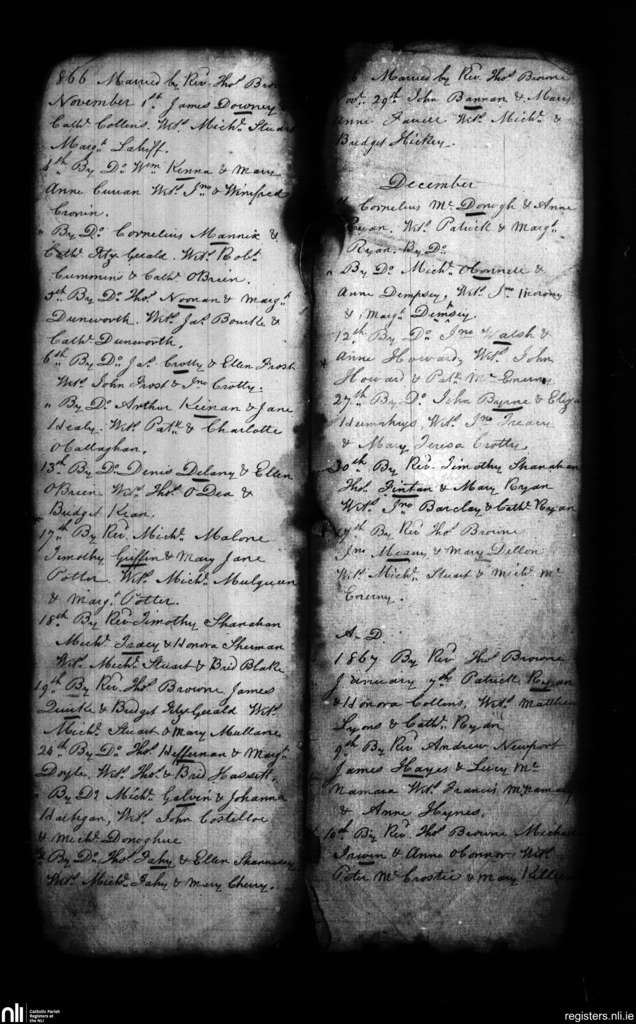 1866 Married by Rev. Thos. Bro
November 1st. James Downey &
Cathe. Collins. Wts. Michl. Stuart
Margt. Lahiff.
4th By Do. Wm. Kenna & Mary
Anne Curran Wts. Jno & Winefred
Cronin.
" By Do. Cornelius Mannix &
Cathe. Fitz Gerald. Wts. Robt.
Cummins & Cathe. O'Brien.
5th By Do. Thos. Noonan & Margt.
Dunworth. Wts. Jas. Bourke &
Cathe. Dunworth.
6th By Do. Jas. Crotty & Ellen Frost
Wts. John Frost & Jno. Crotty.
" By Do. Arthur Keenan & Jane
Healy. Wts. Patk. & Charlotte
O'Callaghan.
13th By Do. Denis Delany & Ellen
O'Brien Wts. Thos. O'Dea &
Bridget Kean.
17th By Rev. Michl. Malone
Timothy Griffin & Mary Jane
Potter. Wts. Michl. Mulqueen
& Margt. Potter.
18th By Rev. Timothy Shanahan
Michl. Tracy & Honora Sherman
Wts. Michl. Stuart & Brid Blake
19th By Rev. Thos. Browne James
Quirke & Bridget Fitz Gerald Wts.
Michl. Stuart & Mary Mullane
24th By Do. Thos. Heffernan & Margt.
Doyle. Wts. Thos & Brid. Hassett.
" By Do. Michl. Galvin & Johanna
Hartigan, Wts. John Costelloe
& Michl. Donoghue
" By Do. Thos. Fahy & Ellen
Wts. Michl. Fahy & Mary Cherry.
Married by Rev. Thos. Browne
Nov. 29th John Bannan & Mary
Anne Wts. Michl. &
Bridget Hickey.
December
Cornelius Mc. Donogh & Anne
Ryan. Wts. Patrick & Margt.
Ryan. By Do.
" By Do. Michl. O'Connell &
Anne Dempsey, Wts. Jno
& Margt. Dempsey.
12th By Do. Jno Walsh &
Anne Howard, Wts. John
Howard & Patk. Mc
27th By Do. John Byrne & Eliza
Humphrys. Wts. Jno Treacy
& Mary Teresa Crotty
30th By Rev. Timothy Shanahan
Thos. Fintan & Mary Ryan
Wts. Jno Barclay & Cathe. Ryan
By Rev Thos Browne
Jno Meany & Mary Dillon
Wts. Michl. Stuart & Michl. Mc
Enerny.
A.D.
1867 By Rev Thos Browne
January 7th Patrick Ryan
& Honora Collins, Wts. Matthew
Lyons & Cathe. Ryan
9th By Rev. Andrew Newport
James Hayes & Lucy Mc
Namara Wts. Francis McNamara
& Anne Haynes.
10th By Rev. Thos Browne Michael
Irwin & Anne O'Connor Wts.
Peter Mc Crostie & Mary
nli
Catholic Parish
Registers at
the NLI
registers.nli.ie